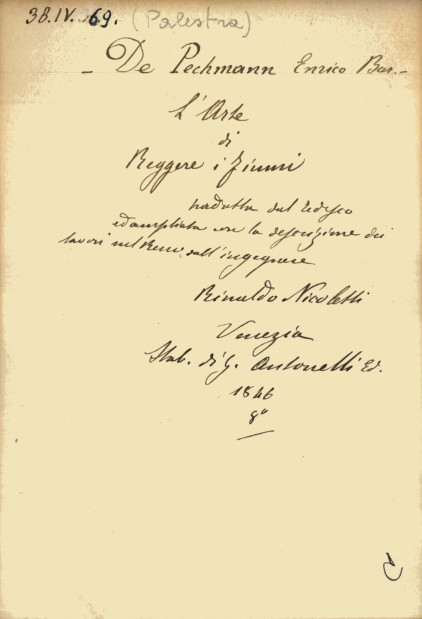 38.IV.69. (Palestra)
- De Pechmann Enrico Bar. -
L'Arte
di
Reggere i fiumi
tradotta dal tedesco
ed ampliata con la descrizione dei
lavori nel Reno dall'ingegnere
Rinaldo Nicoletti
Venezia
Stab. di G. Antonelli Ed.
1846
8°